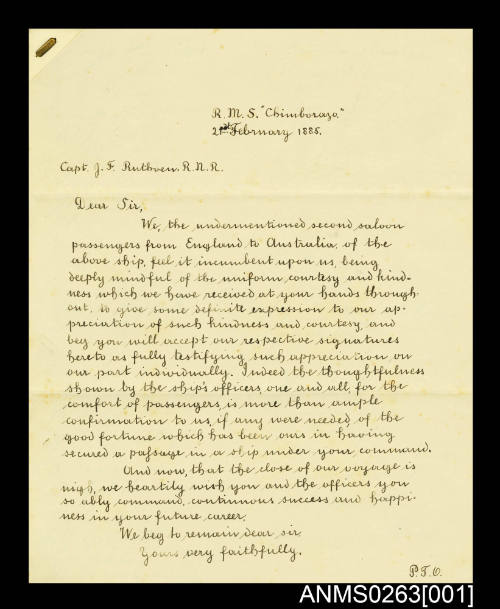 R. M. S. "Chimborazo."
21st February 1885.
Capt. J. F. Ruthven, R.N.R.
Dear Sir,
We, the undermentioned second saloon
passengers from England to Australia, of the
above ship, feel it incumbent upon us, being
deeply mindful of the uniform courtesy and kind-
ness which we have received at your hands through-
out, to give some definite expression to our ap-
preciation of such kindness and courtesy, and
beg you will accept our respective signatures
hereto as fully testifying such appreciation on
our part individually. Indeed the thoughtfulness
shown by the ship's officers, one and all, for the
comfort of passengers, is more than ample
confirmation to us, if any were needed, of the
good fortune which has been ours in having
secured a passage in a ship under your command.
And now, that the close of our voyage is
nigh, we heartily wish you and the officers you
so ably command, continuous success and happi-
ness in your future career.
We beg to remain dear sir
Yours very faithfully.
P.T.O.
ANMS0263[001]